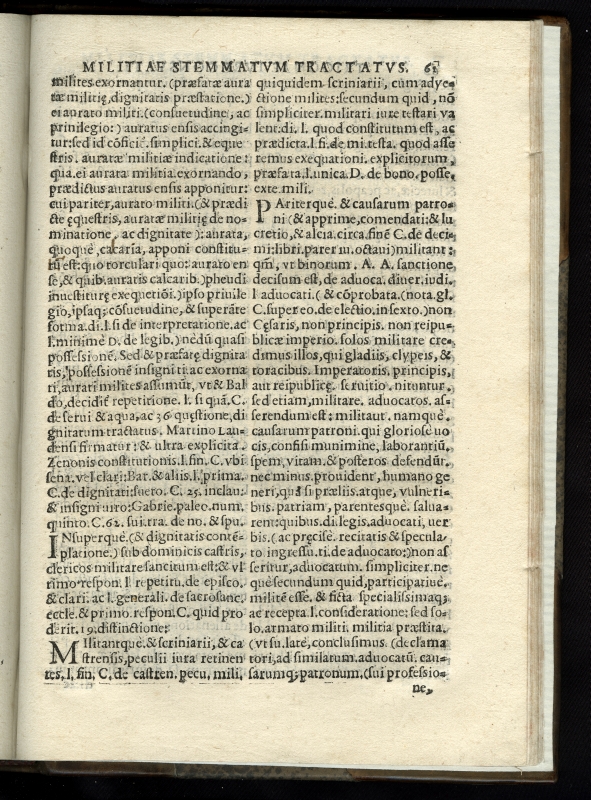 MILITIAE STEMMATVM TRACTATVS. 61
milites exornantur. (præfatæ aura
tæ militię, dignitatis præstatione.)
ei aurato militi. (consuetudine, ac
priuilegio:) auratus ensis accingi-
tur: sed id cōficit. simplici. & eque
stris. auratæ militiæ indicatione:
qua. ei aurata militia. exornando,
prædictus auratus ensis apponitur:
cui pariter, aurato militi. (& prædi
ctę ęquestris, auratæ militię de no-
minatione, ac dignitate): aurata,
quoquè, calcaria, apponi constitu-
tū est: quo torculari quo: aurato en
se, & quib. auratis calcarib.) pheudi
inuestiturę exequetiōi.) ipso priuile
gio, ipsaq; cōsuetudine, & superāte
forma. di. l. si de interpretatione. ac
l. minime D. de legib.) nedū quasi
possessionē. Sed & præfatę dignita
tis, possessionē insigniti ac exorna
ti, aurati milites assumūt, vt & Bal
do, decidit repetitione. l. si quā. C.
de serui & aqua, ac 36 quęstione, di
gnitatum tractatus. Martino Lau-
densi firmatur: & ultra explicita.
Zenonis constitutionis. l. fin. C. vbi
sena. vel clari: Bar. & aliis. l. prima.
C. de dignitati: fuero. C. 25. inclau:
& insigni uiro: Gabrie. paleo. num.
quinto. C. 62. sui. tra. de no. & spu.
INsuperquè. (& dignitatis contē-
platione.) sub dominicis castris,
clericos militare sancitum est: & vl
timo respon. l. repetitu. de episco.
& clari. ac l. generali. de sacrosanc.
eccle. & primo. respon. C. quid pro
derit. 19. distinctione:
MIlitantquè. & scriniarii, & ca
strensis, peculii iura retinen
tes, l. fin. C. de castren. pecu. mili.
quiquidem scriniarii, cùm adue-
ctione milites: secundum quid, nō
simpliciter. militari iure testari va
lent. di. l. quod constitutum est, ac
prædicta. l. fi. de mi. testa. quod asse
remus exequationi. explicitorum,
præfata. l. unica. D. de bono. posse.
exte. mili.
PAriterquè. & causarum patro-
ni (& apprime, comendati: & lu
cretio, & alcia. circa. finē C. de deci-
mi: libri. parer iu. octaui) militant:
qm̄, vt binorum. A. A. sanctione,
decisum est, de aduoca. diuer. iudi.
l aduocati. (& cōprobata. (nota. gl.
C. super eo. de electio. in sexto.) non
Cęsaris, non principis. non reipu-
blicæ imperio. solos militare cre-
dimus illos, qui gladiis, clypeis, &
toracibus. Imperatoris, principis,
aut reipublicę. seruitio. nituntur.
sed etiam, militare. aduocatos. as-
serendum est: militaut. namquè.
causarum patroni. qui gloriose uo
cis, confisi munimine, laborantiū.
spem, vitam. & posteros defendūt.
nec minus. prouident, humano ge
neri, quā si præliis. atque, vulneri-
bus. patriam, parentesquè. salua-
rent: quibus. di. legis. aduocati, uer
bis. (ac pręcisę. recitatis & specula-
to ingressu. ti. de aduocato:) non as
seritur, aduocatum. simpliciter. ne
què secundum quid, participatiuè.
militē esse. & ficta specialissimaq;
ac recepta. l. consideratione; sed so-
lo. armato militi. militia præstita.
(vt su. latè, conclusimus. (declama
tori, ad similatum. aduocatū. cau-
sarumq; patronum. (sui professio-
ne,